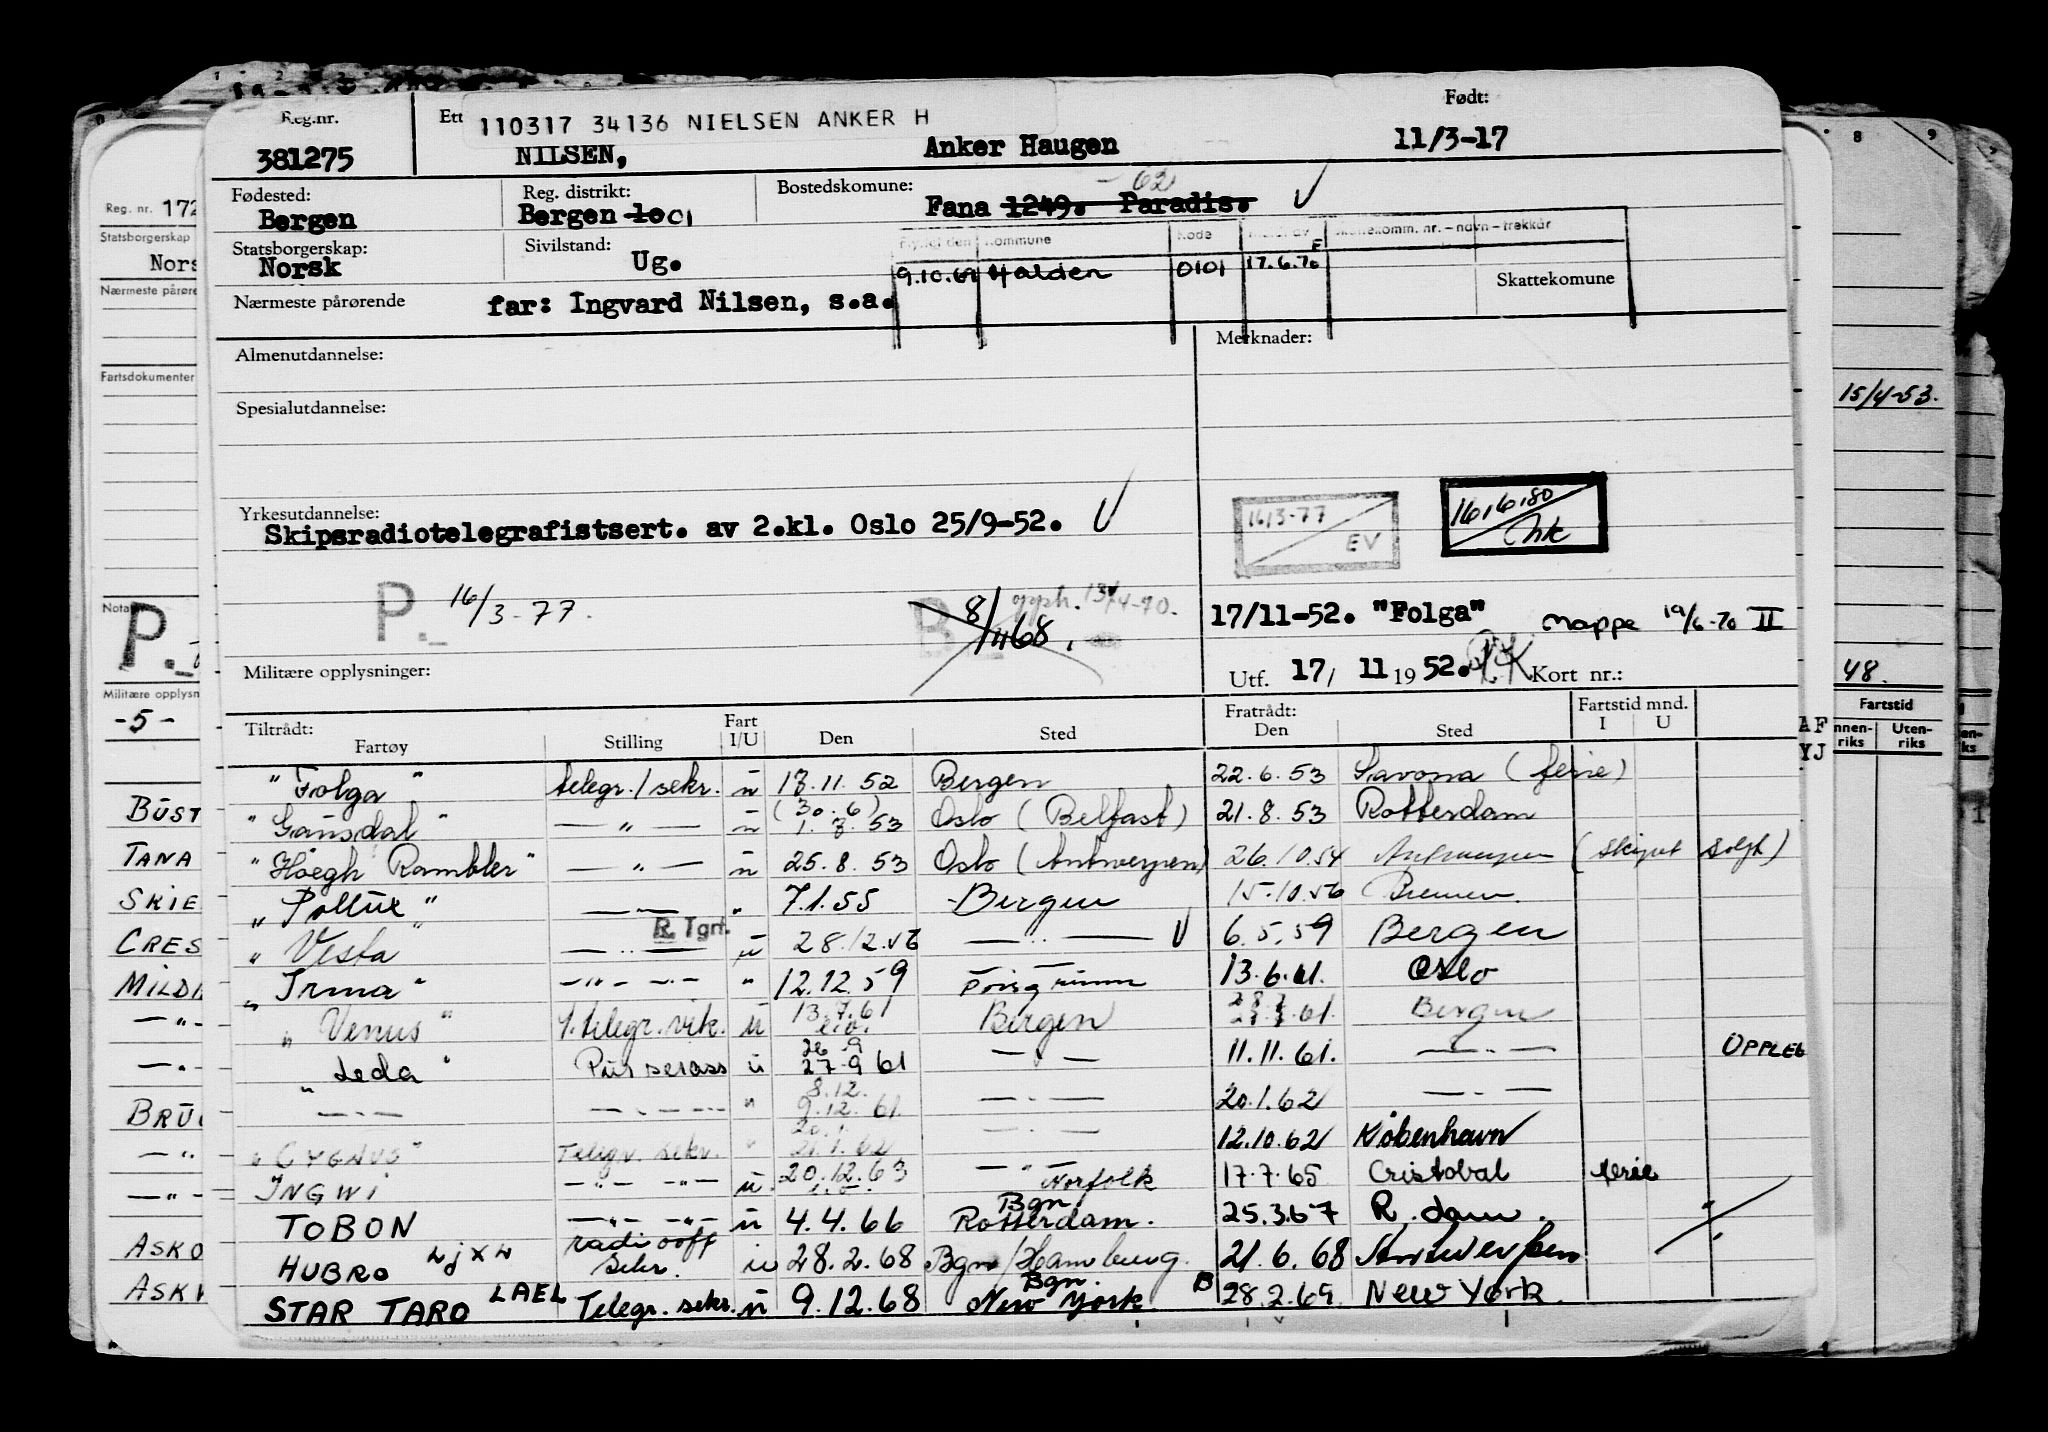 Reg.nr. Ett Født:
110317 34136 NIELSEN ANKER H
381275 NILSEN, Anker Haugen 11/3-17
Fødested: Reg. distrikt: Bostedskomune: - 62
Bergen Bergen 1001 Fana 1249. Paradis. V
Statsborgerskap: Sivilstand: Kommune Kode
Norsk Ug. 9.10.69 Halden 0101 17.6.70 Skattekomune
Nærmeste pårørende far: Ingvard Nilsen, s.a.
Almenutdannelse: Merknader:
Spesialutdannelse:
Yrkesutdannelse:
Skipsradiotelegrafistsert. av 2.kl. Oslo 25/9-52. V
16/3-77 EV
16.6.80
P. 16/3-77. B 8/11 68. opph. 13/4-70.
17/11-52. "Folga" Mappe 19/6-70 II
Militære opplysninger: Utf. 17/ 11 1952. Kort nr.:
Tiltrådt: Fratrådt: Fartstid mnd.
Fartøy Stilling Fart I/U Den Sted Den Sted I U
"Folga" telegr./sekr. u 17.11.52 Bergen 22.6.53 Savona (ferie)
"Gausdal" — " — u (30.6) 1.7.53 Oslo (Belfast) 21.8.53 Rotterdam
"Höegh Rambler" — " — u 25.8.53 Oslo (Antwerpen) 26.10.54 Antwerpen (skipet solgt)
"Pollux" — " — " 7.1.55 Bergen 15.10.56 Bremen.
"Vesta" — " — R. Tgrf. u 28.12.56 — " — V 6.5.59 Bergen
"Irma" — " — — " — " 12.12.59 Porsgrunn 13.6.61. Oslo
"Venus" 1. telegr. vik. u 13.7.61 Bergen 28.7.61. Bergen
"Leda" Purserass u 26.9 27.9 61 — " — 11.11.61. — " —
— " — — " — " 8.12. 9.12.61. — " — 20.1.62 — " —
"CYGNUS" Telegr. sekr. " 20.1. 21.1.62 — " — 12.10.62 København
INGWI — " — — " — u. 20.12.63 — " — Norfolk 17.7.65 Cristobal ferie
TOBON — " — — " — u 4.4.66 Bgn. Rotterdam. 25.3.67 R.dam.
HUBRO LJXW radiooff sekr. u 28.2.68 Bgn/Hamburg. 21.6.68 Antwerpen
STAR TARO LAEL Telegr. sekr. u 9.12.68 Bgn. New York B 28.2.69. New York.
Reg. nr. 172
Statsborgerskap
Nors
Nærmeste pårøre
Fartsdokumenter
Nota
P.
Militære opplysn
-5-
BUST
TANA
SKIE
CRES
MILD
— " -
— " -
BRU
— "
— " -
ASKO
ASK
8 9
15/4-53.
48.
Fartstid
nnen-riks Uten-riks
AF
YJ
OPPLEG